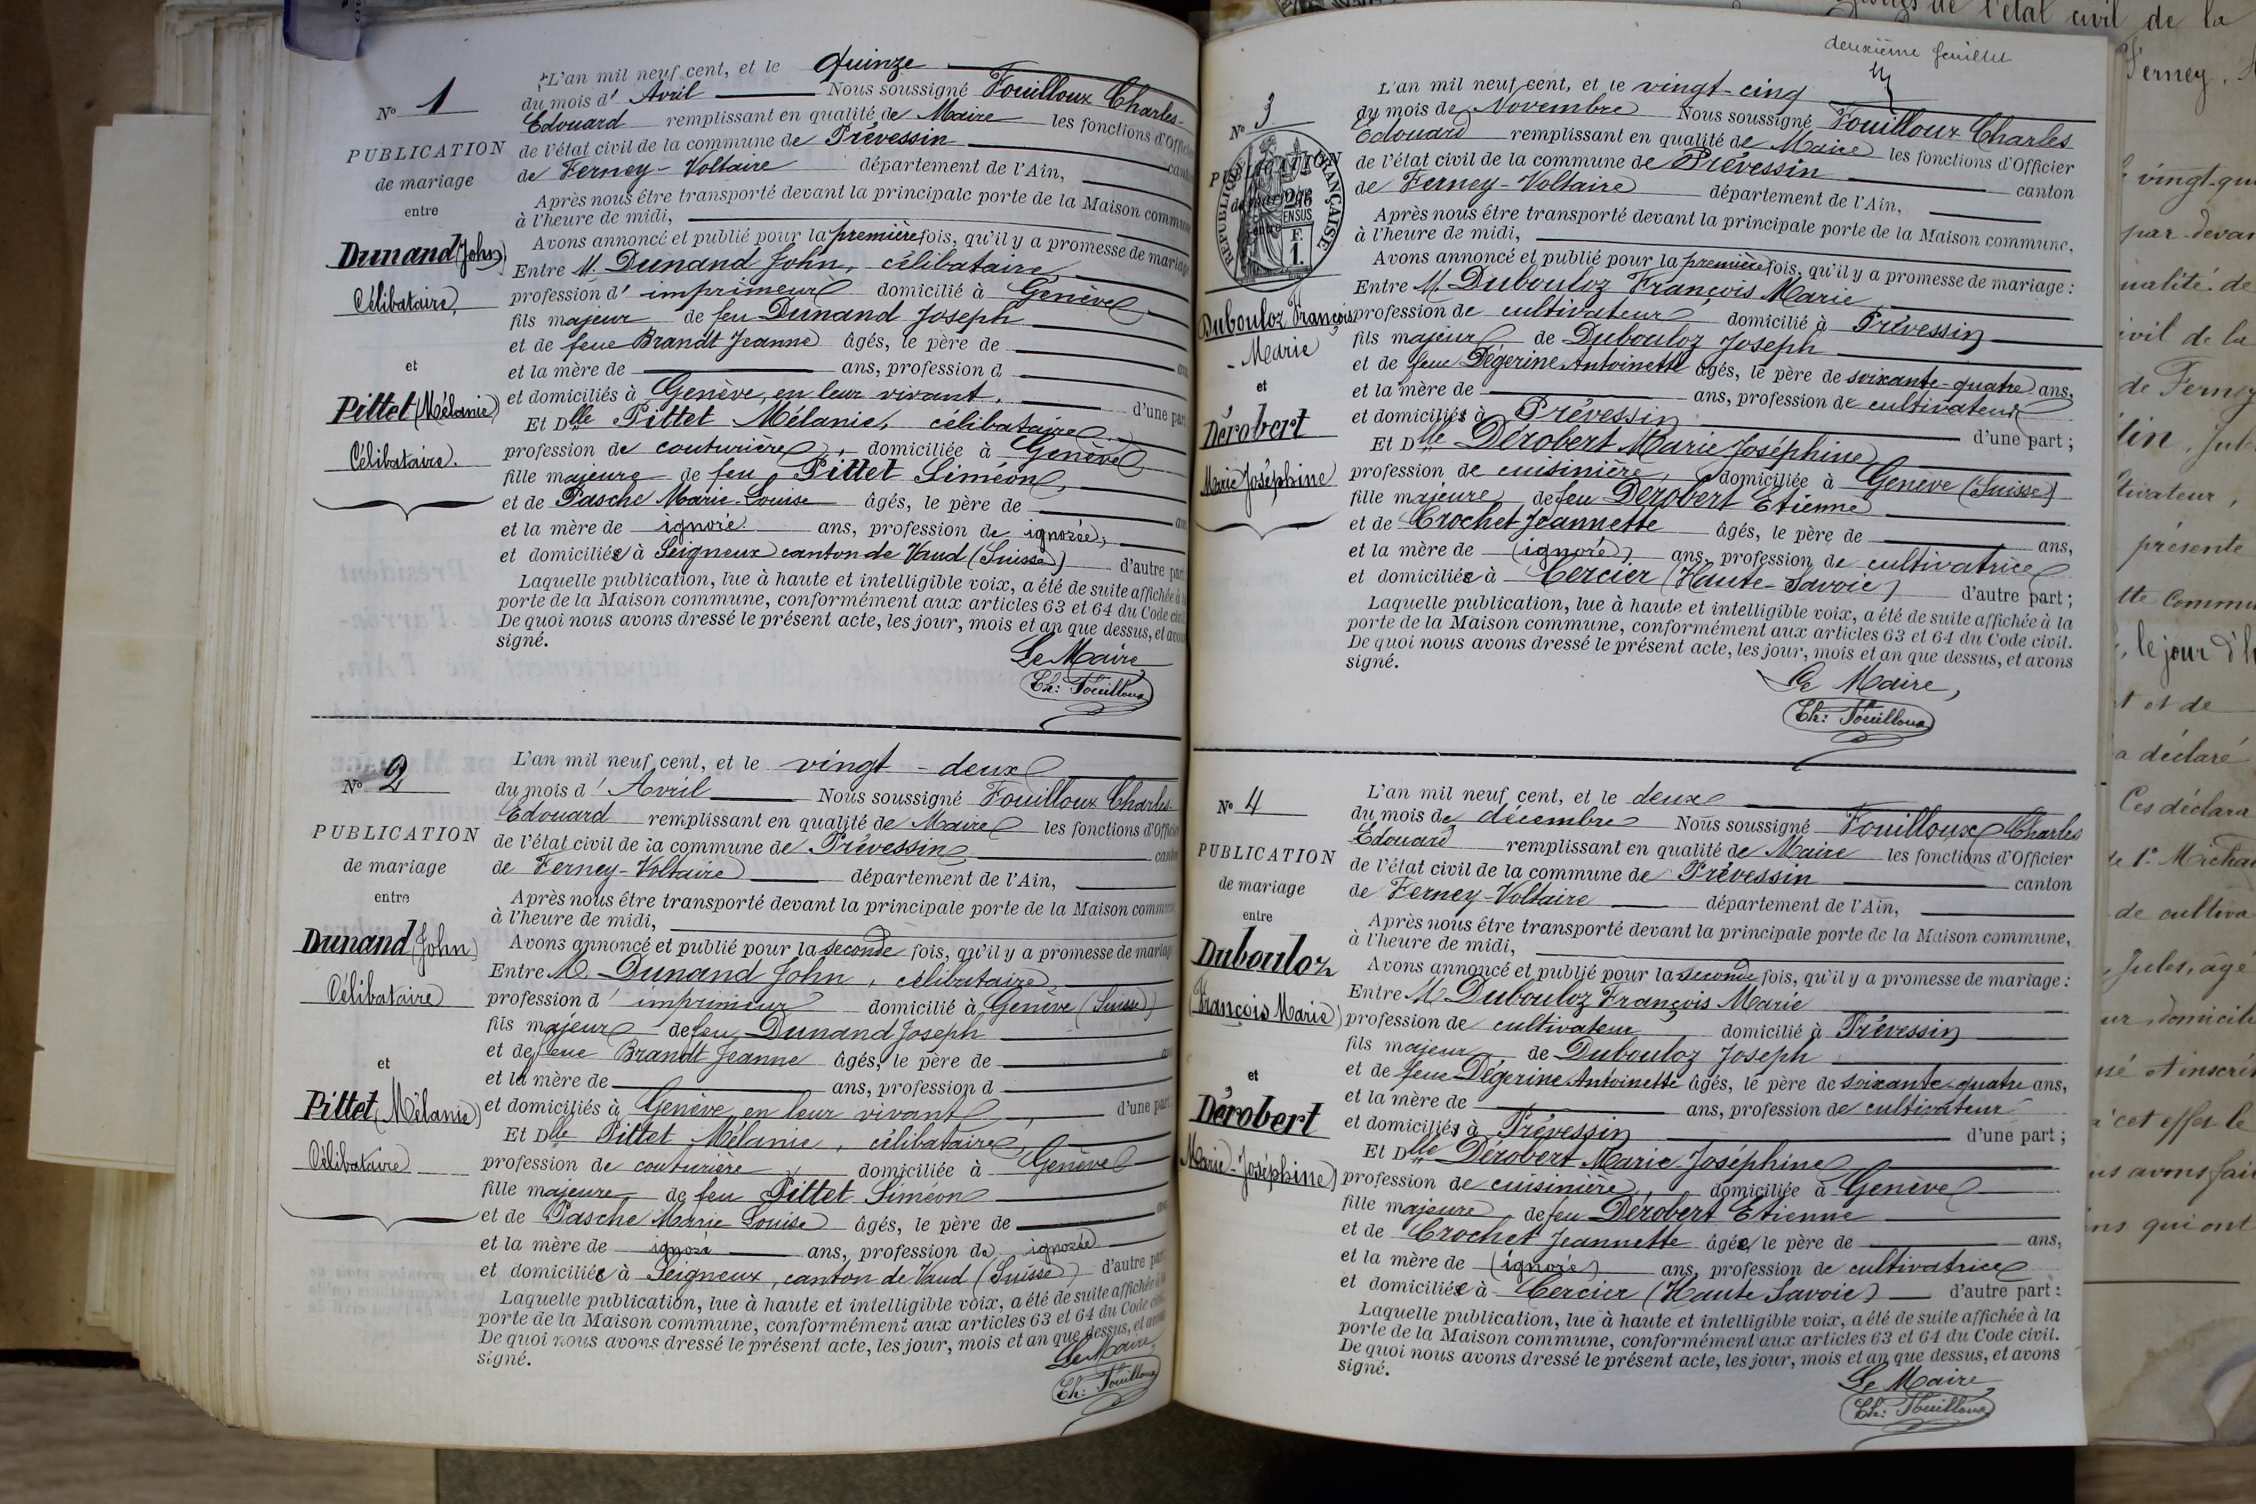 No 1
PUBLICATION
de mariage
entre
Dunand (John)
Célibataire,
et
Pittet (Mélanie)
Célibataire.
L'an mil neuf cent, et le quinze
du mois d' Avril Nous soussigné Fouilloux Charles-
Edouard remplissant en qualité de Maire les fonctions d'Officier
de l'état civil de la commune de Prévessin canton
de Ferney-Voltaire département de l'Ain,
Après nous être transporté devant la principale porte de la Maison commune
à l'heure de midi,
Avons annoncé et publié pour la première fois, qu'il y a promesse de mariage
Entre M. Dunand John, célibataire,
profession d' imprimeur domicilié à Genève
fils majeur de feu Dunand Joseph
et de feue Brandt Jeanne âgés, le père de ans
et la mère de ans, profession d
et domiciliés à Genève, en leur vivant, d'une part
Et Dlle Pittet Mélanie, célibataire
profession de couturière, domiciliée à Genève
fille majeure de feu Pittet Siméon,
et de Pasche Marie-Louise âgés, le père de ans
et la mère de ignoré ans, profession de ignorée,
et domiciliée à Seigneux canton de Vaud (Suisse) d'autre part
Laquelle publication, lue à haute et intelligible voix, a été de suite affichée à la
porte de la Maison commune, conformément aux articles 63 et 64 du Code civil
De quoi nous avons dressé le présent acte, les jour, mois et an que dessus, et avons
signé.
Le Maire,
Ch: Fouilloux
No 2
PUBLICATION
de mariage
entre
Dunand (John)
Célibataire
et
Pittet (Mélanie)
Célibataire
L'an mil neuf cent, et le vingt-deux
du mois d' Avril Nous soussigné Fouilloux Charles-
Edouard remplissant en qualité de Maire les fonctions d'Officier
de l'état civil de la commune de Prévessin canton
de Ferney-Voltaire département de l'Ain,
Après nous être transporté devant la principale porte de la Maison commune
à l'heure de midi,
Avons annoncé et publié pour la seconde fois, qu'il y a promesse de mariage
Entre M Dunand John, célibataire,
profession d' imprimeur domicilié à Genève (Suisse)
fils majeur de feu Dunand Joseph
et de feue Brandt Jeanne âgés, le père de ans
et la mère de ans, profession d
et domiciliés à Genève en leur vivant, d'une part
Et Dlle Pittet Mélanie, célibataire,
profession de couturière domiciliée à Genève
fille majeure de feu Pittet Siméon
et de Pasche Marie Louise âgés, le père de ans
et la mère de ignoré ans, profession de ignorée
et domiciliée à Seigneux, canton de Vaud (Suisse) d'autre part
Laquelle publication, lue à haute et intelligible voix, a été de suite affichée à la
porte de la Maison commune, conformément aux articles 63 et 64 du Code civil
De quoi nous avons dressé le présent acte, les jour, mois et an que dessus, et avons
signé.
Le Maire,
Ch: Fouilloux
deuxième feuillet
No 3
PUBLICATION
de mariage
entre
RÉPUBLIQUE FRANÇAISE
2/10 EN SUS
F.
1.
Dubouloz François
-Marie
et
Dérobert
Marie Joséphine
L'an mil neuf cent, et le vingt-cinq
du mois de Novembre Nous soussigné Fouilloux Charles
Edouard remplissant en qualité de Maire les fonctions d'Officier
de l'état civil de la commune de Prévessin canton
de Ferney-Voltaire département de l'Ain,
Après nous être transporté devant la principale porte de la Maison commune,
à l'heure de midi,
Avons annoncé et publié pour la première fois, qu'il y a promesse de mariage :
Entre M Dubouloz François Marie
profession de cultivateur domicilié à Prévessin
fils majeur de Dubouloz Joseph
et de feue Dégerine Antoinette âgés, le père de soixante-quatre ans,
et la mère de ans, profession de cultivateur
et domiciliés à Prévessin d'une part ;
Et Dlle Dérobert Marie Joséphine
profession de cuisinière, domiciliée à Genève (Suisse)
fille majeure de feu Dérobert Etienne
et de Crochet Jeannette âgés, le père de ans,
et la mère de (ignoré) ans, profession de cultivatrice
et domiciliée à Cercier (Haute-Savoie) d'autre part ;
Laquelle publication, lue à haute et intelligible voix, a été de suite affichée à la
porte de la Maison commune, conformément aux articles 63 et 64 du Code civil.
De quoi nous avons dressé le présent acte, les jour, mois et an que dessus, et avons
signé.
Le Maire,
Ch: Fouilloux
No 4
PUBLICATION
de mariage
entre
Dubouloz
(François Marie)
et
Dérobert
(Marie-Joséphine)
L'an mil neuf cent, et le deux
du mois de décembre Nous soussigné Fouilloux Charles
Edouard remplissant en qualité de Maire les fonctions d'Officier
de l'état civil de la commune de Prévessin canton
de Ferney-Voltaire département de l'Ain,
Après nous être transporté devant la principale porte de la Maison commune,
à l'heure de midi,
Avons annoncé et publié pour la seconde fois, qu'il y a promesse de mariage :
Entre M Dubouloz François Marie
profession de cultivateur domicilié à Prévessin
fils majeur de Dubouloz Joseph
et de feue Dégerine Antoinette âgés, le père de soixante-quatre ans,
et la mère de ans, profession de cultivateur
et domiciliés à Prévessin d'une part ;
Et Dlle Dérobert Marie Joséphine
profession de cuisinière, domiciliée à Genève
fille majeure de feu Dérobert Etienne
et de Crochet Jeannette âgée, le père de ans,
et la mère de (ignoré) ans, profession de cultivatrice
et domiciliée à Cercier (Haute Savoie) d'autre part :
Laquelle publication, lue à haute et intelligible voix, a été de suite affichée à la
porte de la Maison commune, conformément aux articles 63 et 64 du Code civil.
De quoi nous avons dressé le présent acte, les jour, mois et an que dessus, et avons
signé.
Le Maire,
Ch: Fouilloux
de l'état civil de la
Ferney,
vingt-qu
par-devan
ualité de
ivil de la
de Ferney
tin, Jul
tivateur,
présente
tte commu
, le jour d'h
t et de
a déclaré
Ces déclara
de 1° Micha
de cultiva
, Jules, âgé
ur, domicili
sé et inscri
à cet effet le
us avons fai
ns qui ont